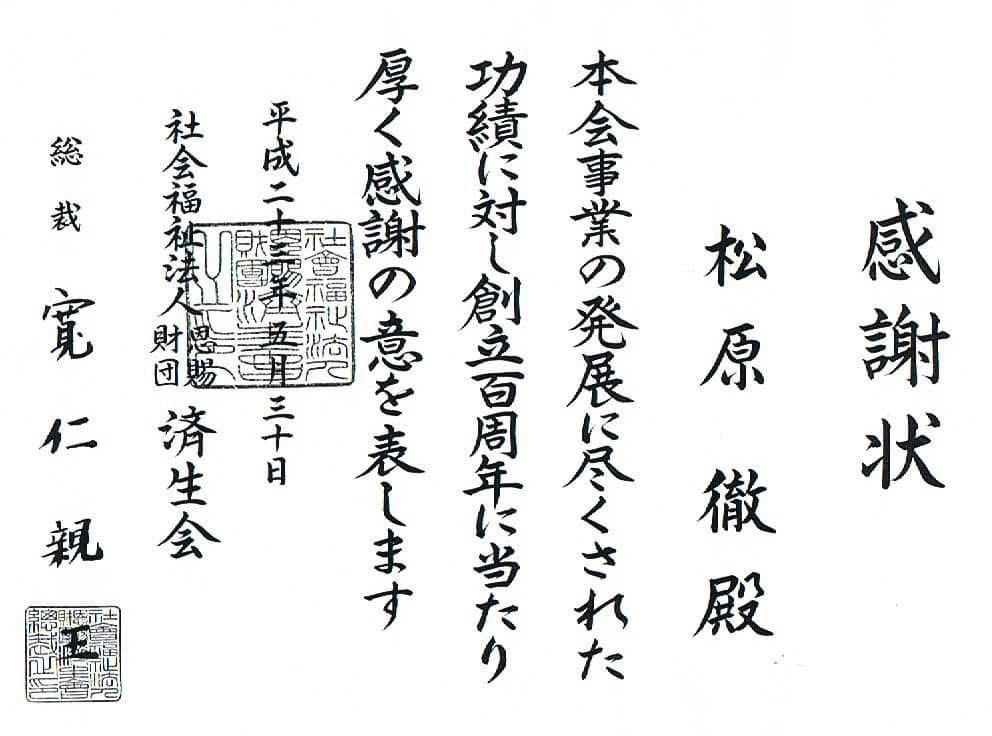 感謝状
松原徹殿
本会事業の発展に尽くされた
功績に対し創立百周年に当たり
厚く感謝の意を表します
平成二十三年五月三十日
社会福祉法人 恩賜財団 済生会
総裁 寛仁親王